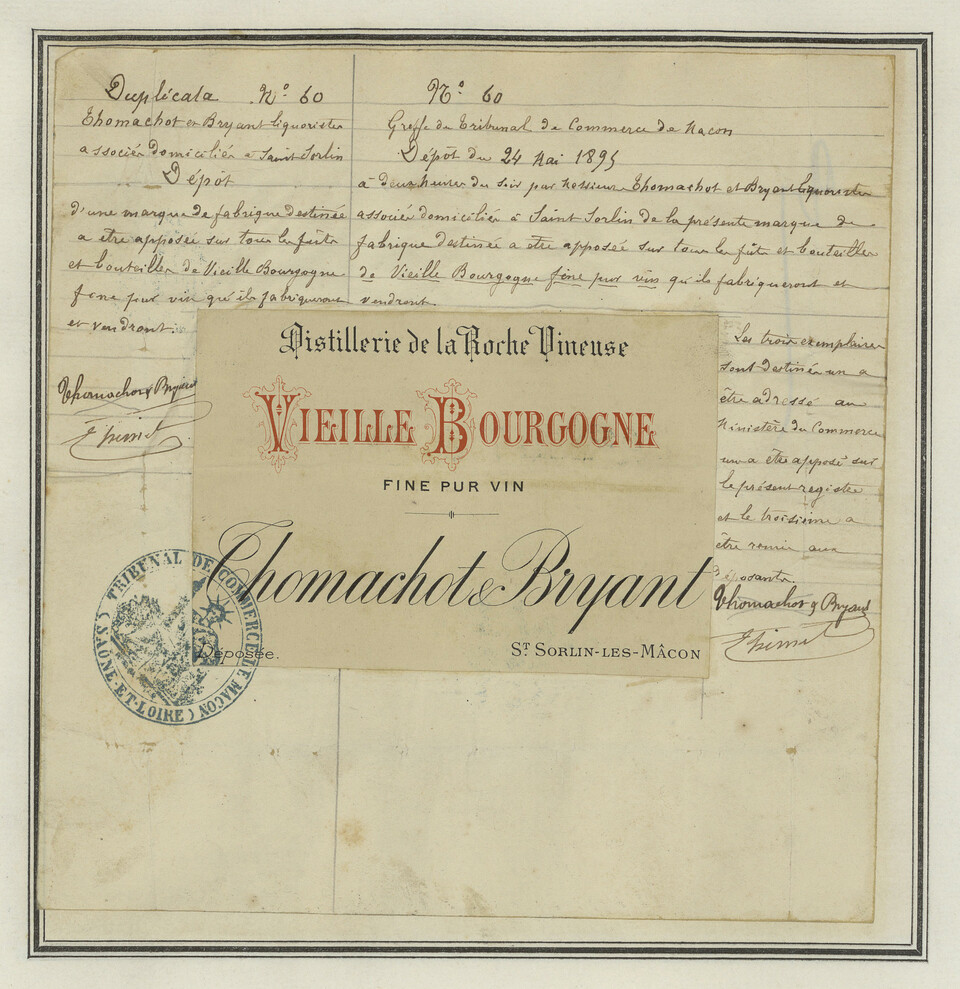 Duplicata N° 60
Thomachot et Bryant liquoristes
associés domiciliés à Saint Sorlin
Dépôt
d'une marque de fabrique destinée
a etre apposée sur tous les fûts
et bouteilles de Vieille Bourgogne
fine pur vin qu'ils fabriqueront
et vendront.
Thomachot & Bryant
N° 60
Greffe du Tribunal de Commerce de Macon
Dépôt du 24 Mai 1895
à deux heures du soir par Messieurs Thomachot et Bryant liquoristes
associés domiciliés à Saint Sorlin de la présente marque de
fabrique destinée a etre apposée sur tous les fûts et bouteilles
de Vieille Bourgogne fine pur vin qu'ils fabriqueront et
vendront
Les trois exemplaires
sont destinés un a
être adressé au
Ministère du Commerce
un a être apposé sur
le présent registre
et le troisième a
être remis aux
déposants.
Thomachot & Bryant
Distillerie de la Roche Vineuse
VIEILLE BOURGOGNE
FINE PUR VIN
Thomachot & Bryant
Déposée.
ST SORLIN-LES-MÂCON
TRIBUNAL DE COMMERCE DE MACON
(SAONE-ET-LOIRE)